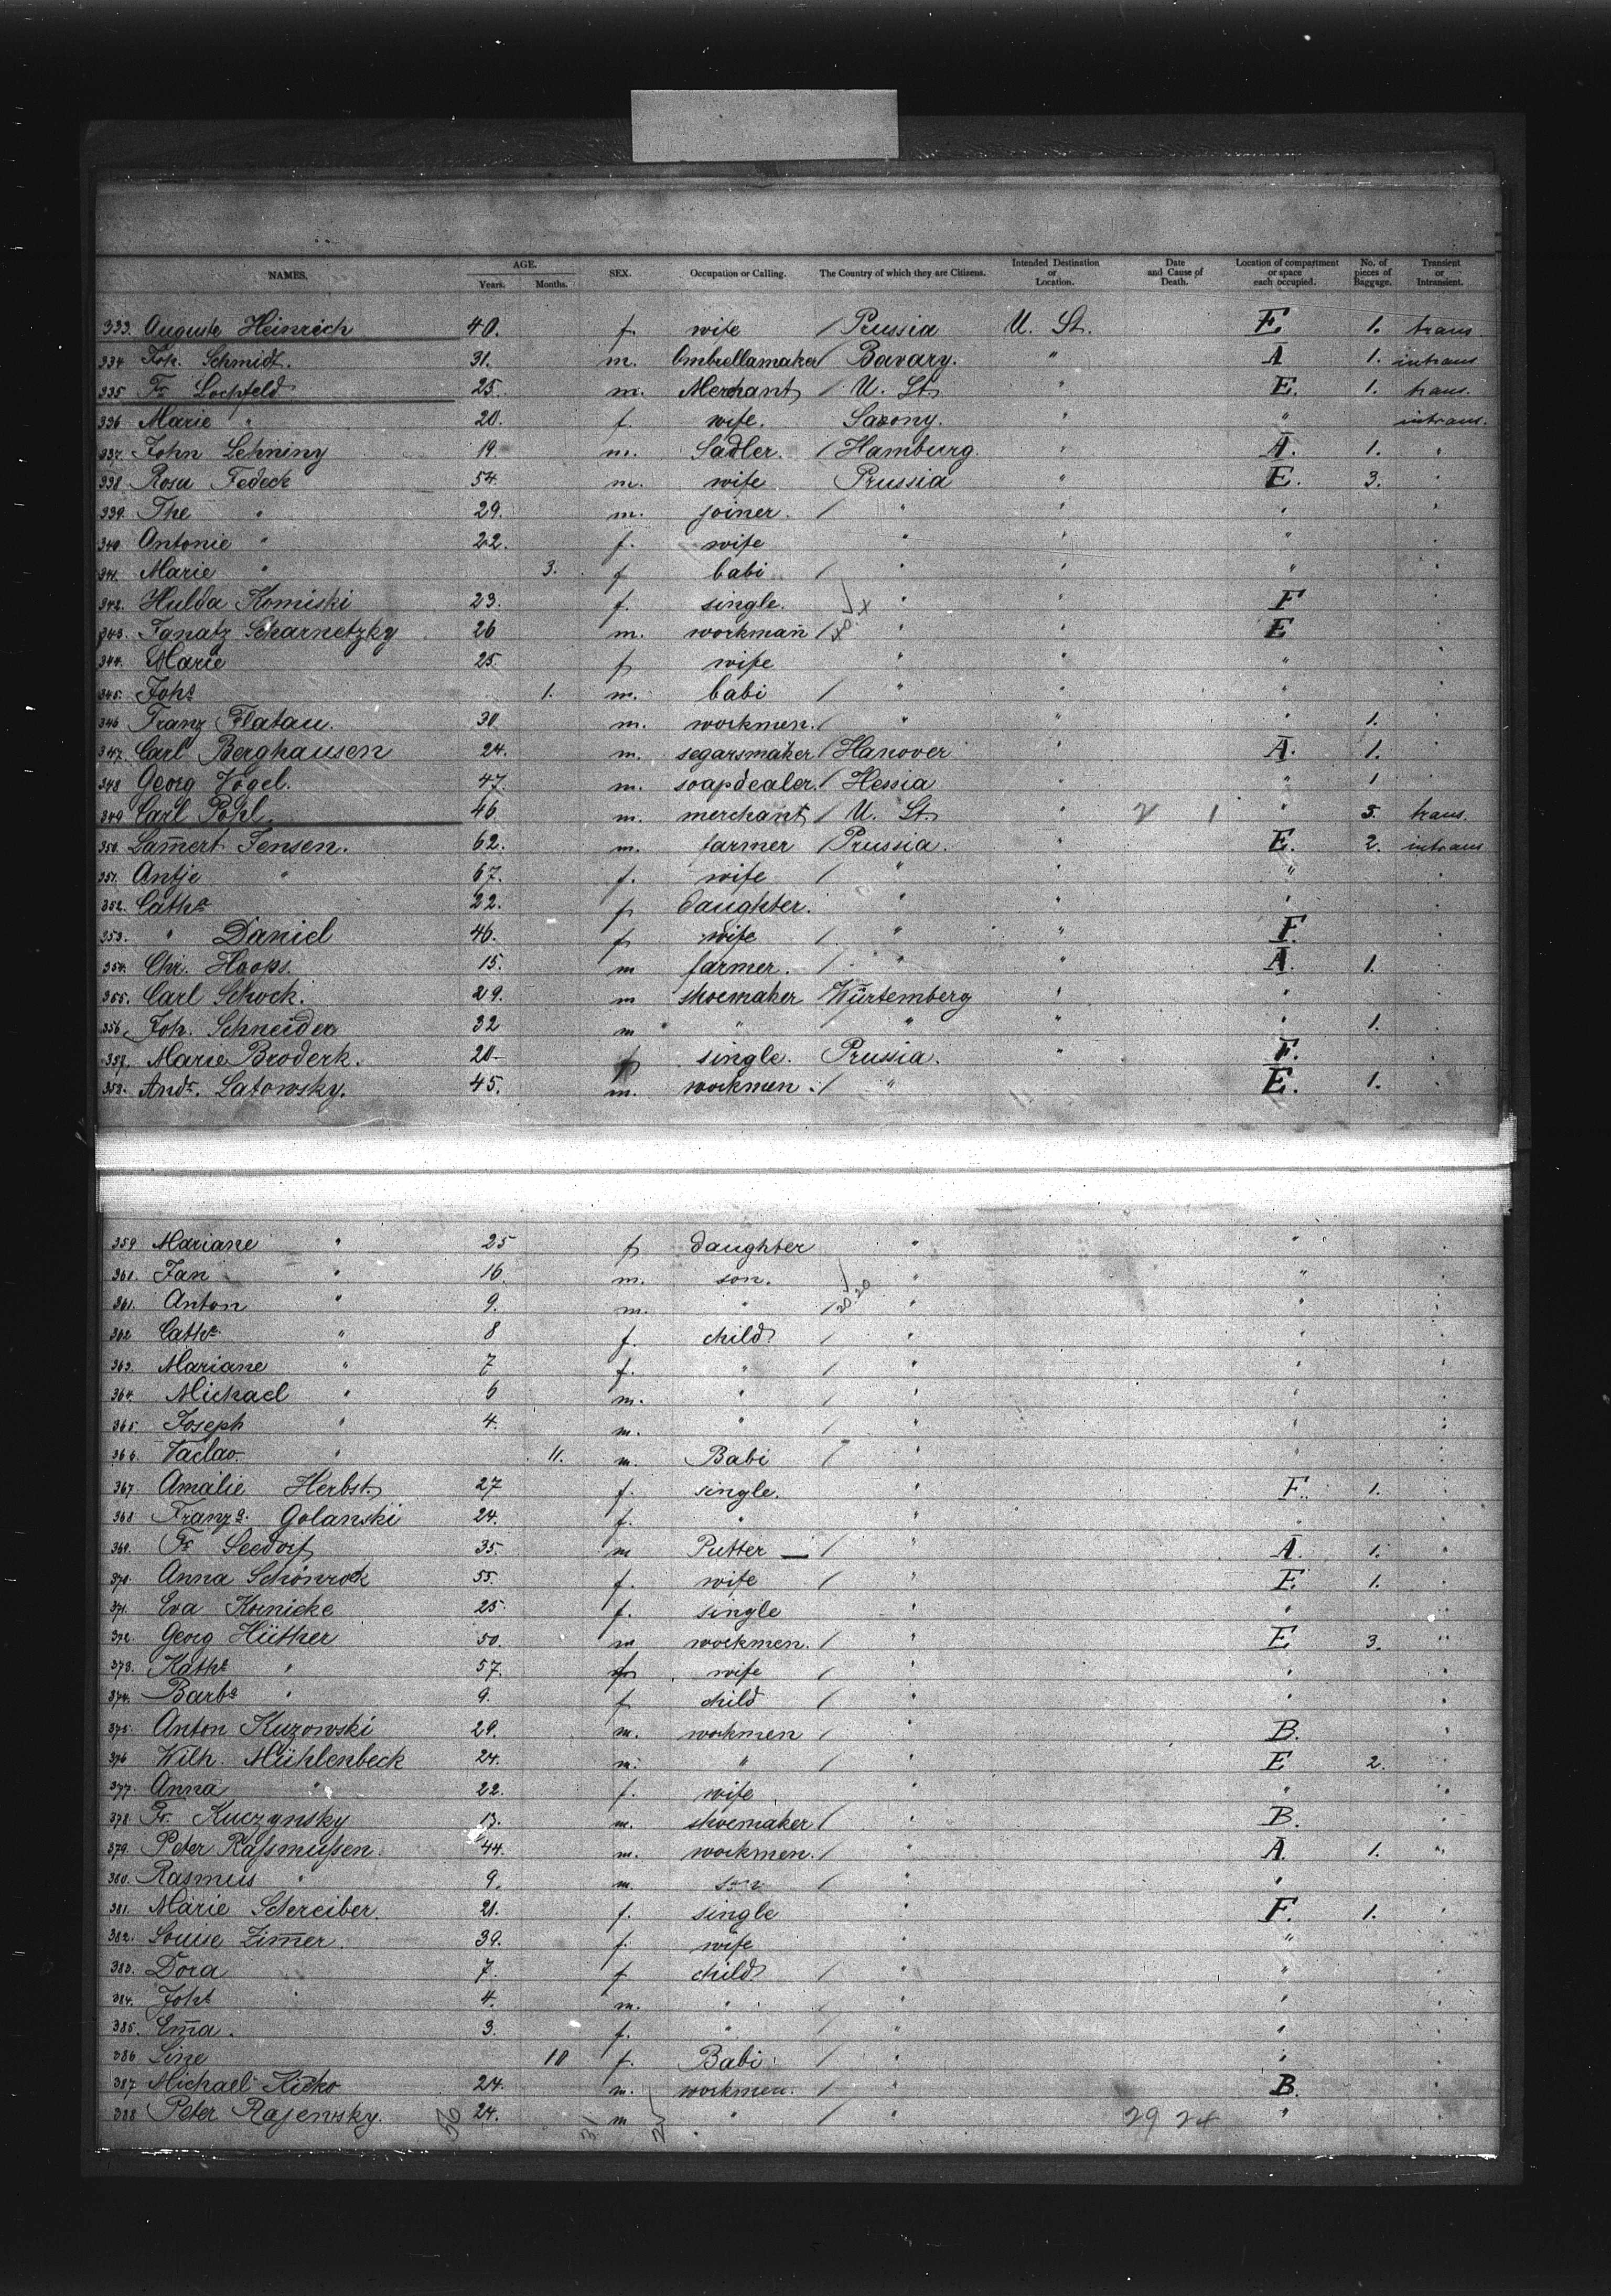 NAMES. AGE. Years. Months. SEX. Occupation or Calling. The Country of which they are Citizens. Intended Destination or Location. Date and Cause of Death. Location of compartment or space each occupied. No. of pieces of Baggage. Transient or Intransient.
333. Auguste Heinrich 40. f. wife / Prussia U. St. E. 1. trans
334 Joh. Schmidt. 31. m. Ombrellamaker / Bavary. " A 1. intrans
335 Fr. Lochfeld 25. m. Merchant / U. St. " E. 1. trans.
336 Marie " 20. f. wife. Saxony. " " intrans.
337. John Lehniny 19. m. Sadler. / Hamburg " A. 1. "
338 Rosa Fedeck 54. m. wife Prussia " E. 3. "
339. The " 29. m. joiner. / " " " "
340 Antonie " 22. f. wife " " "
341. Marie " 3. f babi / " " " "
342. Hulda Komiski 23. f. single. " F "
343. Ignatz Scharnetzky 26 m. workman / " " E "
344. Marie 25. f wife " " " "
345. Johs 1. m. babi / " " "
346 Franz Flatau. 30 m. workmen. / " " " 1. "
347. Carl Berghausen 24. m. segarsmaker / Hanover " A. 1. "
348 Georg Vogel. 47. m. soapdealer. / Hessia " " 1 "
349 Carl Pohl. 46. m. merchant / U. St. " 2 1 " 5. trans.
350. Lam̄ert Jensen. 62. m. farmer / Prussia. " E. 2. intrans
351. Antje " 67. f. wife / " " " "
352. Catha 22. f daughter. " " " "
353. " Daniel 46. f wife / " " F. "
354. Chr. Hoops. 15. m farmer. / " " A. 1. "
355. Carl Schock. 29. m shoemaker / Würtemberg " " "
356. Joh. Schneider 32 m " " / " " " 1. "
357. Marie Broderk. 20 f single. Prussia. " F. "
358. Andr. Latowsky. 45. m. workmen. / " E. 1. "
359 Mariane " 25 f daughter " " "
360. Jan " 16. m. son. " " "
361. Anton " 9. m. " / 20.20 " " "
362 Catha " 8 f. child / " " "
363. Mariane " 7 f. " / " " "
364. Michael " 6 m. " / " " "
365. Joseph " 4. m. " / " " "
366. Vaclav. " 11. m. Babi / " " "
367 Amalie Herbst. 27 f. single. " F. 1. "
368 Franza. Golanski 24. f. " " " "
369. Fr. Seedorf 35. m Putter — / " A. 1. "
370. Anna Schönrock 55. f. wife / " E. 1. "
371. Eva Koenicke 25. f. single " " "
372. Georg Hüther 50. m workmen. / " E 3. "
373. Kathe " 57. f wife / " " "
374. Barba " 9. f child / " " "
375. Anton Kuzowski 29. m. workmen / " B. "
376 Wilh. Mühlenbeck 24. m. " / " E 2. "
377. Anna " 22. f. wife " " "
378. Fr. Kuczynsky 13. m. shoemaker / " B. "
379. Peter Raſsmuſsen. 44. m. workmen. / " A. 1. "
380. Rasmus " 9. m. son / " " "
381. Marie Schreiber. 21. f. single " F. 1. "
382. Louise Zim̄er. 39. f. wife " " "
383. Dora 7. f child / " " "
384. Johs " 4. m. " / " " "
385. Em̄a. 3. f. " / " " "
386 Line 10 f. Babi / " " "
387 Michael Kicko 24. m. workmen. / " B. "
388 Peter Rajewsky. 24. m " / " 29 24 " "